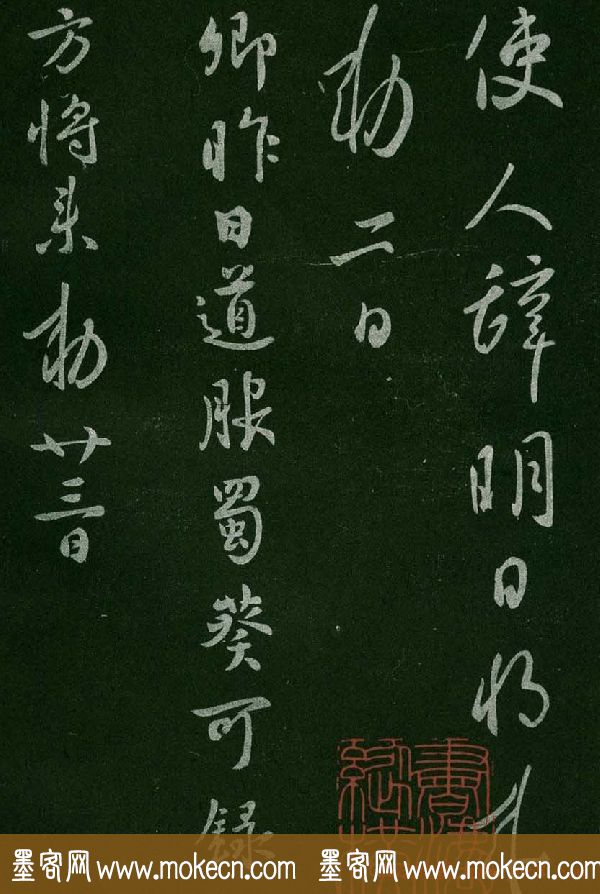 使人辞明日将
勅二日
卿昨日道服蜀葵可録
方將来勅廿三日
墨客网 www.mokecn.com 墨客网 www.mokecn.com